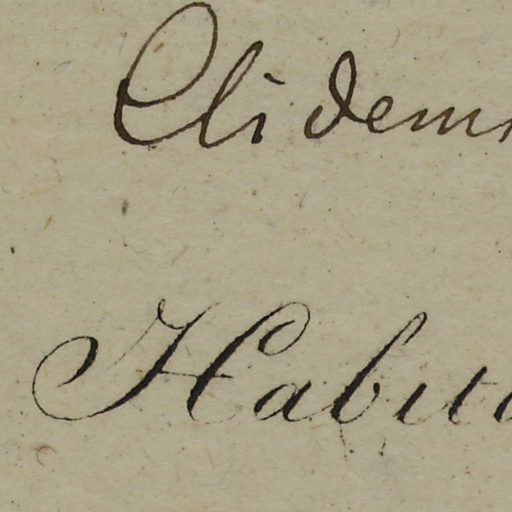 Clidem
Habita